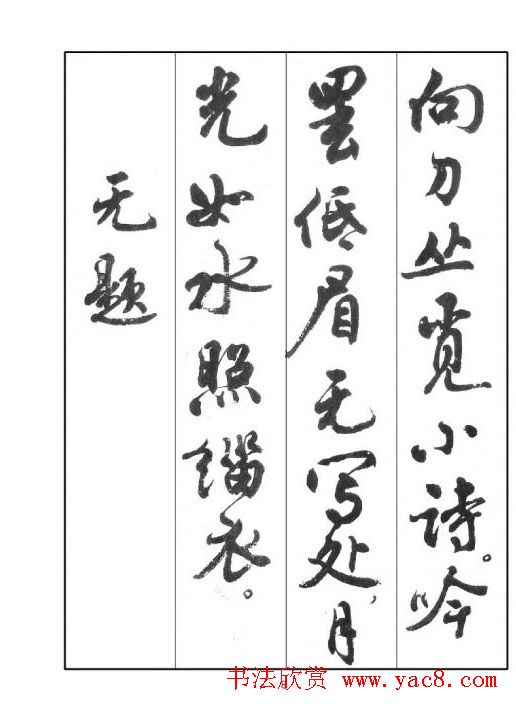 向刀丛觅小诗。吟
罢低眉无写处,月
光如水照缁衣。
无题
书法欣赏 www.yac8.com